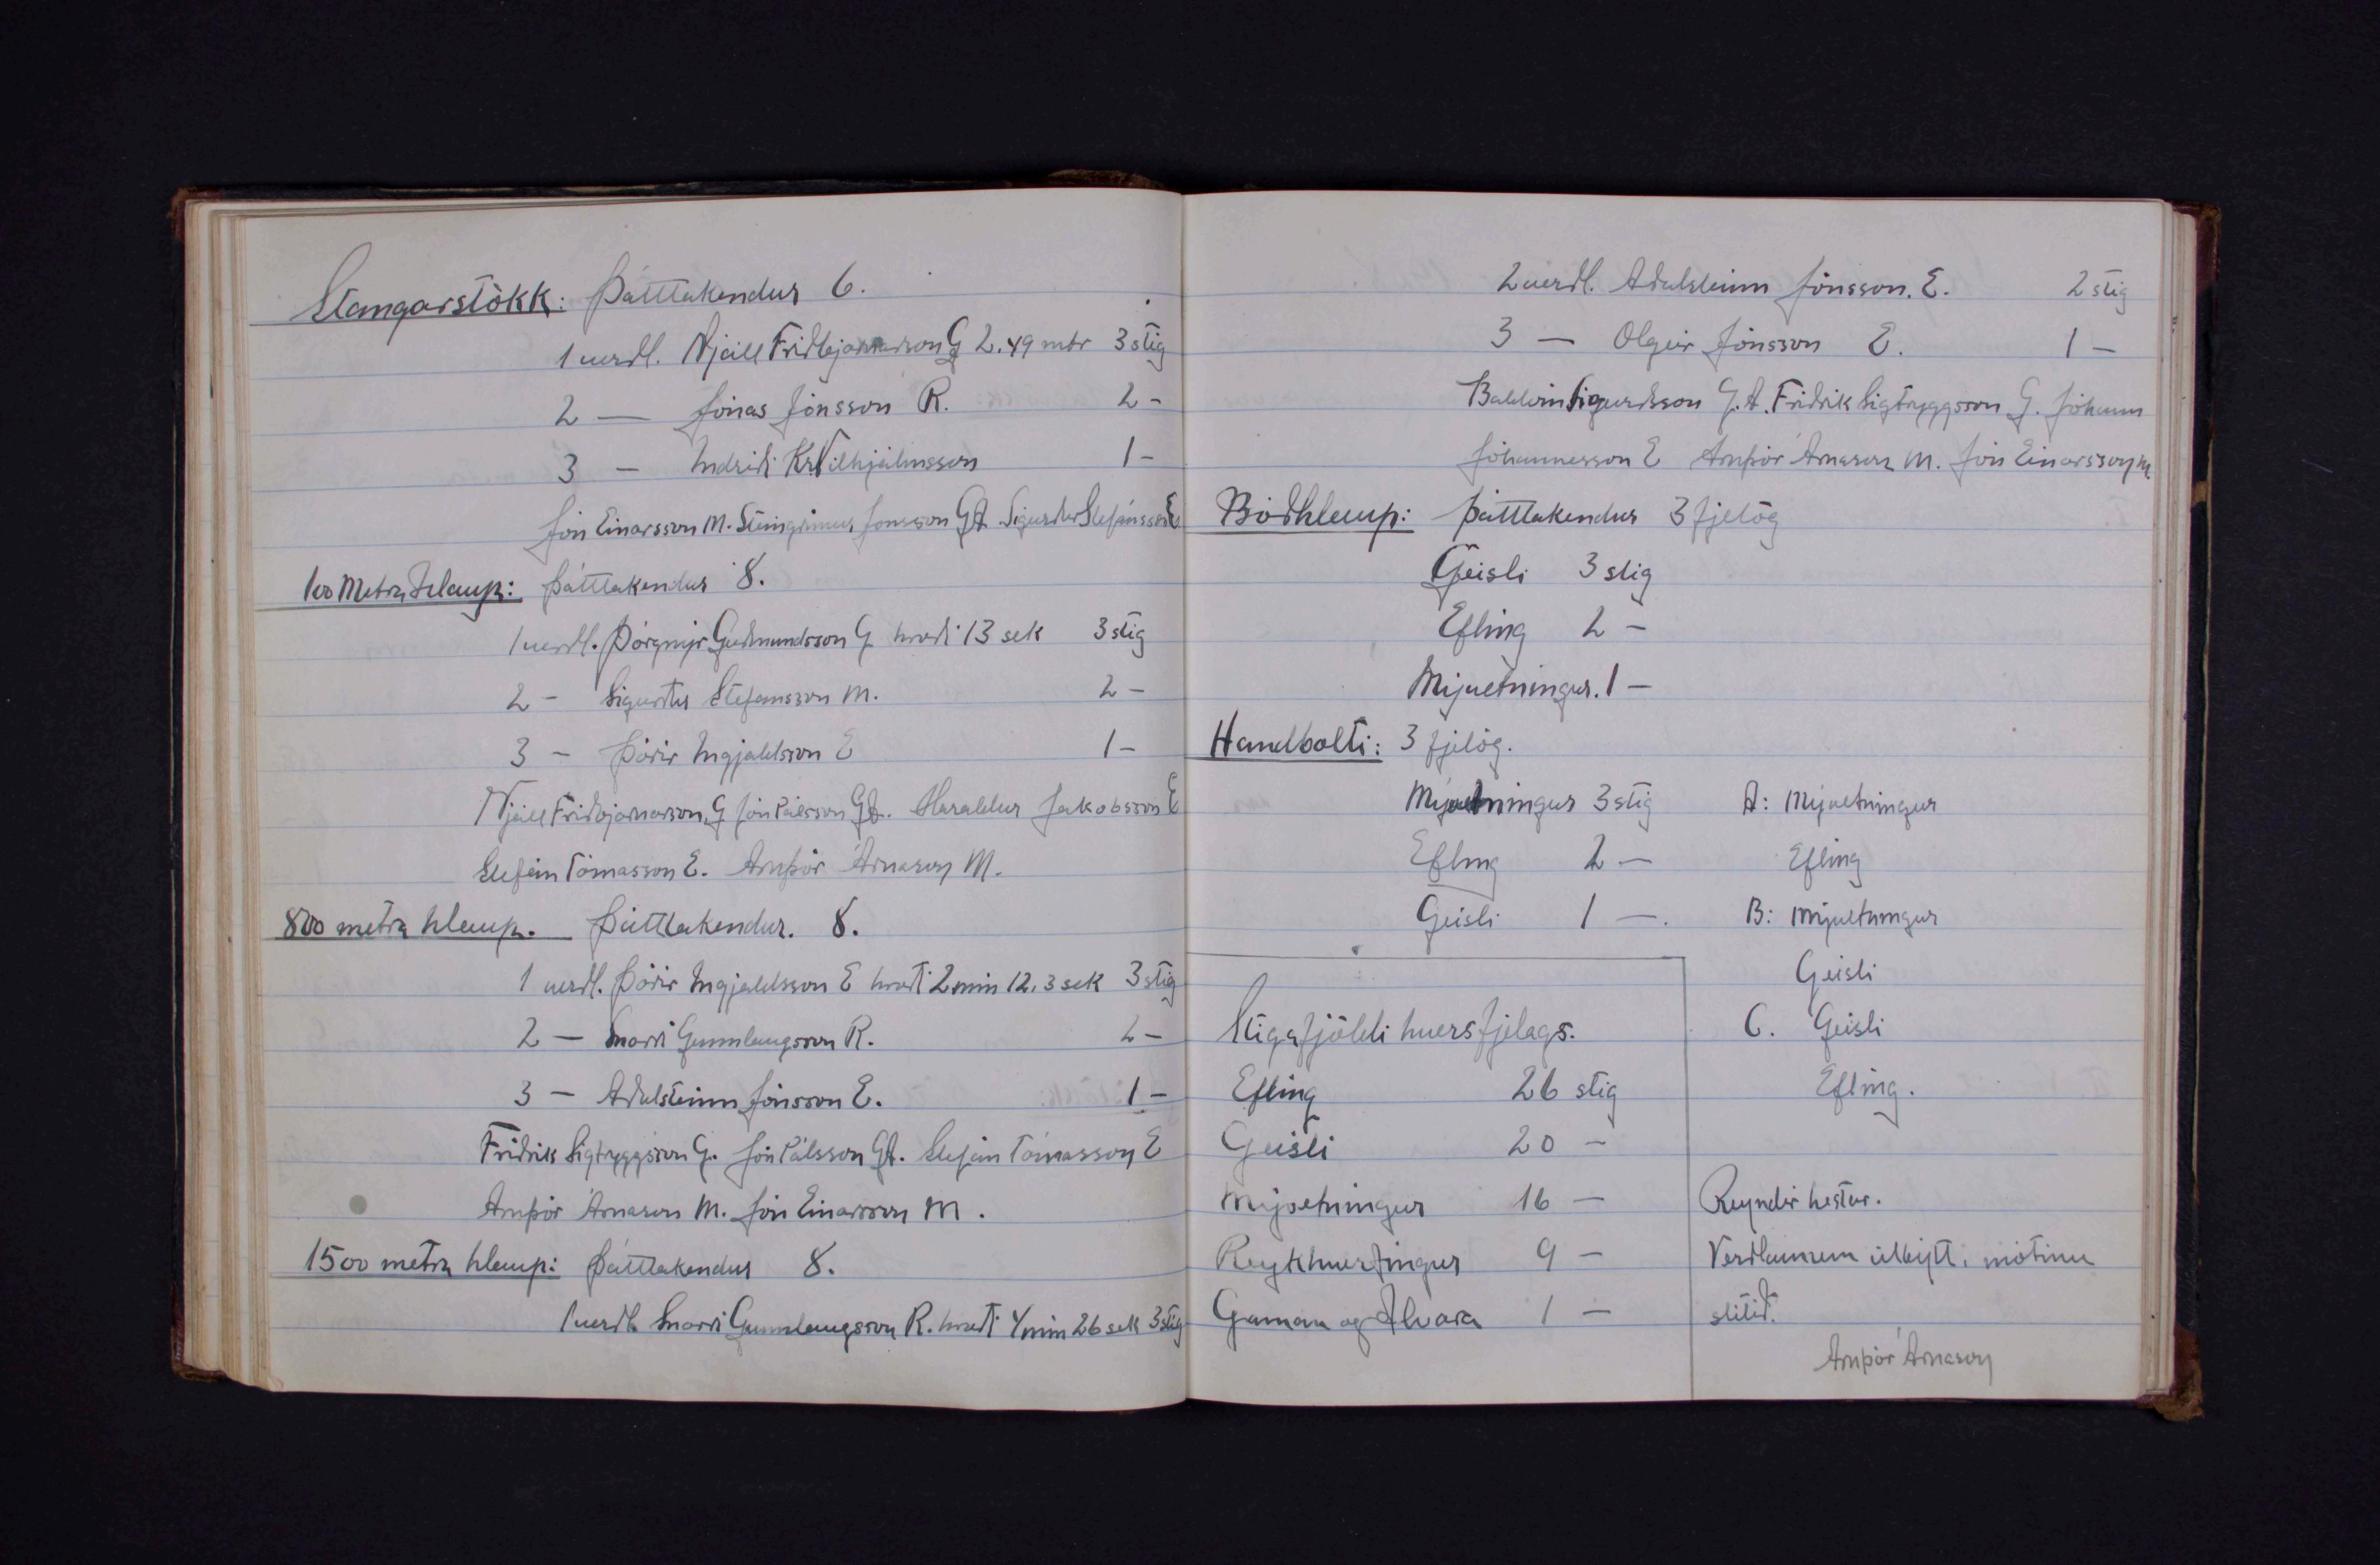 Stangarstökk: Þátttakendur 6.
1 verdl. Njáll Fridbjarnarson G 2.49 mtr 3 stig
2 — Jónas Jónsson R. 2 -
3 — Indridi Kr. Vilhjálmsson 1 -
Jón Einarsson M. Steingrímur Jónsson G.A. Sigurdur Stefánsson E
100 Metra hlaup: Þátttakendur 8.
1 verdl. Þórgnýr Gudmundsson G hradi 13 sek 3 stig
2 - Sigurdur Stefansson M. 2 -
3 - Þórir Ingjaldsson E 1 -
Njáll Fridbjarnarson, G Jón Pálsson G.A. Haraldur Jakobsson E
Stefán Tómasson E. Arnþór Árnason M.
800 metra hlaup. Þátttakendur. 8.
1 verdl. Þórir Ingjaldsson E hradi 2 min 12,3 sek 3 stig
2 — Snorri Gunnlaugsson R. 2 -
3 — Adalsteinn Jónsson E. 1 -
Fridrik Sigtryggsson G. Jón Pálsson G.A. Stefán Tómasson E
Arnþór Árnason M. Jón Einarsson M.
1500 metra hlaup: Þátttakendur 8.
1 verdl. Snorri Gunnlaugsson R. hradi 4 min 26 sek 3 stig
2 verdl. Adalsteinn Jónsson. E. 2 stig
3 — Olgeir Jónsson E. 1 —
Baldvin Sigurdsson G.A. Fridrik Sigtryggsson G. Jóhann
Jóhannesson E Arnþór Árnason M. Jón Einarsson M.
Bodhlaup: Þátttakendur 3 fjelög
Geisli 3 stig
Efling 2 —
Mývetningur. 1 —
Handbolti: 3 fjelög.
Mývetningur 3 stig A: Mývetningur
Efling 2 — Efling
Geisli 1 —. B: Mývetningur
Geisli
Stigafjöldi hvers fjelags. C. Geisli
Efling 26 stig Efling.
Geisli 20 —
Mývetningur 16 — Reyndir hestar.
Reykhverfingur 9 — Verdlaunum útbýtt, mótinu
Gaman og Alvara 1 — slitid.
Arnþór Árnason